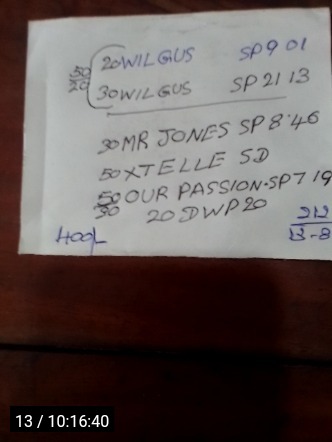 50
20
20 WILGUS SP 9 01
30 WILGUS SP 21 13
30 MR JONES SP 8.46
50 XTELLE SD
50 OUR PASSION.SP 7 19
30
20 DWP 20
400L
212
13-8
13 / 10:16:40